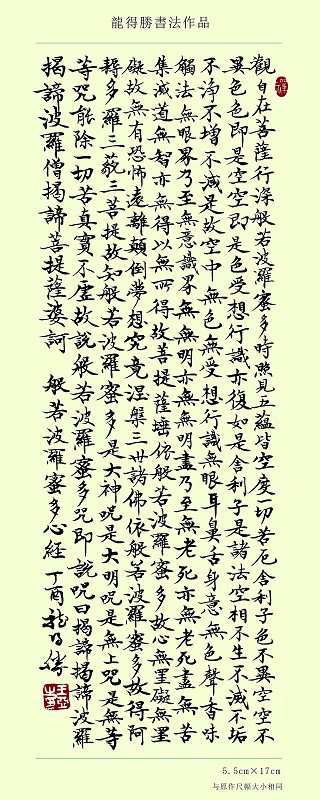 龍得勝書法作品
觀自在菩薩行深般若波羅蜜多時照見五蘊皆空度一切苦厄舍利子色不異空空不
異色色即是空空即是色受想行識亦復如是舍利子是諸法空相不生不滅不垢
不淨不增不減是故空中無色無受想行識無眼耳鼻舌身意無色聲香味
觸法無眼界乃至無意識界無無明亦無無明盡乃至無老死亦無老死盡無苦
集滅道無智亦無得以無所得故菩提薩埵依般若波羅蜜多故心無罣礙無罣
礙故無有恐怖遠離顛倒夢想究竟涅槃三世諸佛依般若波羅蜜多故得阿
耨多羅三藐三菩提故知般若波羅蜜多是大神咒是大明咒是無上咒是無等
等咒能除一切苦真實不虛故說般若波羅蜜多咒即說咒曰揭諦揭諦波羅
揭諦波羅僧揭諦菩提薩婆訶 般若波羅蜜多心經 丁酉龍得勝
5.5cm×17cm
与原作尺幅大小相同